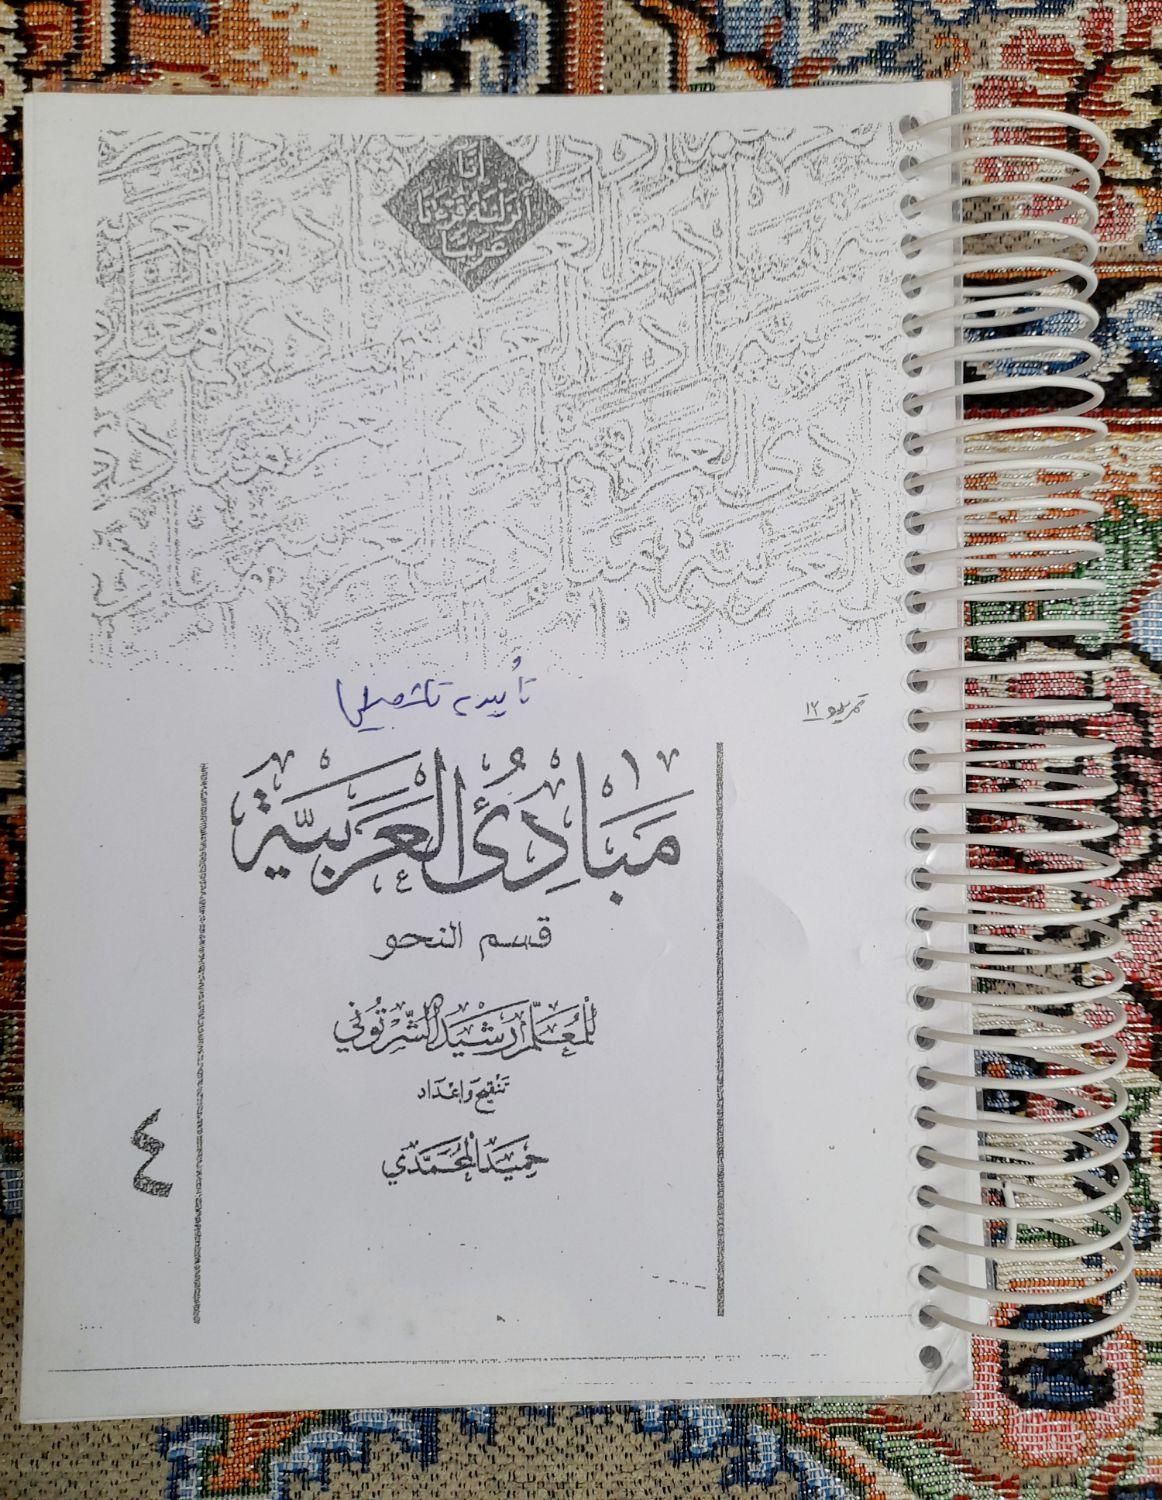 إنا
أنزلنه قرءنا
عربيا
مبادئ العربية
قسم النحو
للمعلم رشيد الشرتوني
تنقيح وإعداد
حميد المحمدي
٤